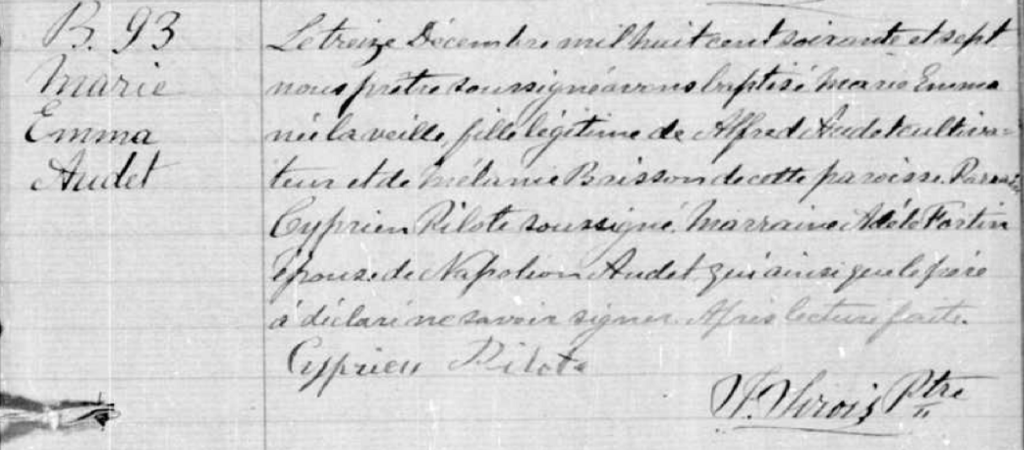 B. 93
Marie
Emma
Audet
Le treize Décembre mil huit cent soixante et sept
nous prêtre soussigné avons baptisé Marie Emma
née la veille, fille légitime de Alfred Audet cultiva=
teur et de Mélanie Buisson de cette paroisse. Parrain
Cyprien Pilote soussigné. Marraine Adèle Fortin
épouse de Napoléon Audet qui ainsi que le père
a déclaré ne savoir signer. Après lecture faite.
Cyprien Pilote
Sirois Ptre